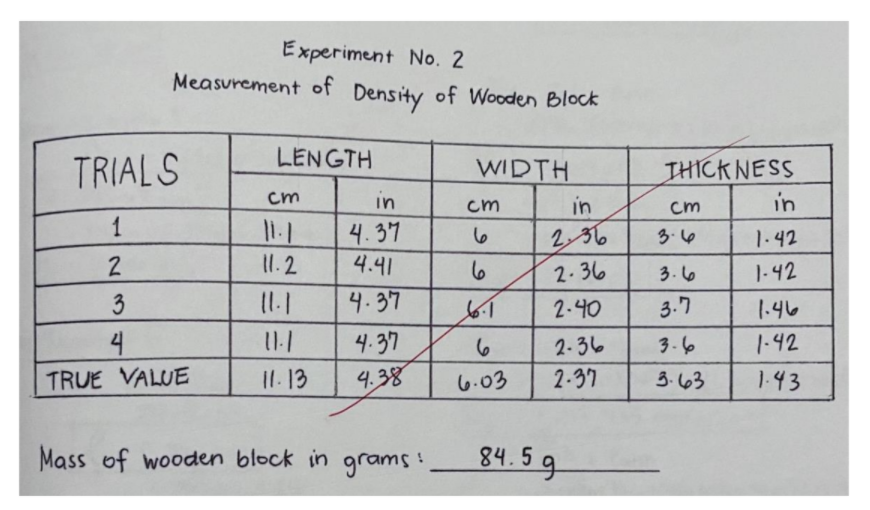 Experiment No. 2
Measurement of Density of Wooden Block
TRIALS LENGTH WIDTH THICKNESS
cm in cm in cm in
1 11.1 4.37 6 2.36 3.6 1.42
2 11.2 4.41 6 2.36 3.6 1.42
3 11.1 4.37 6.1 2.40 3.7 1.46
4 11.1 4.37 6 2.36 3.6 1.42
TRUE VALUE 11.13 4.38 6.03 2.37 3.63 1.43
Mass of wooden block in grams: 84.5 g